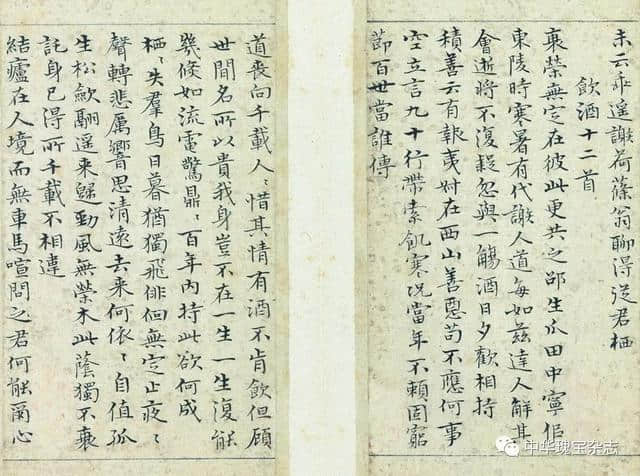 未云乖遥謝荷篠翁聊得從君栖
飲酒十二首
衰榮無定在彼此更共之邵生瓜田中寧佀
東陵時寒暑有代謝人道每如茲達人解其
會逝將不復疑忽與一觴酒日夕歡相持
積善云有報夷叔在西山善惡苟不應何事
空立言九十行帶索飢寒況當年不賴固窮
節百世當誰傳
道喪向千載人〻惜其情有酒不肯飲但顧
世間名所以貴我身豈不在一生一生復能
幾倏如流電驚鼎〻百年內持此欲何成
栖〻失羣鳥日暮猶獨飛徘徊無定止夜〻
聲轉悲厲響思清遠去来何依〻自值孤
生松歛翮遥来歸勁風無榮木此蔭獨不衰
託身已得所千載不相違
結廬在人境而無車馬喧問之君何能爾心
中华瑰宝杂志